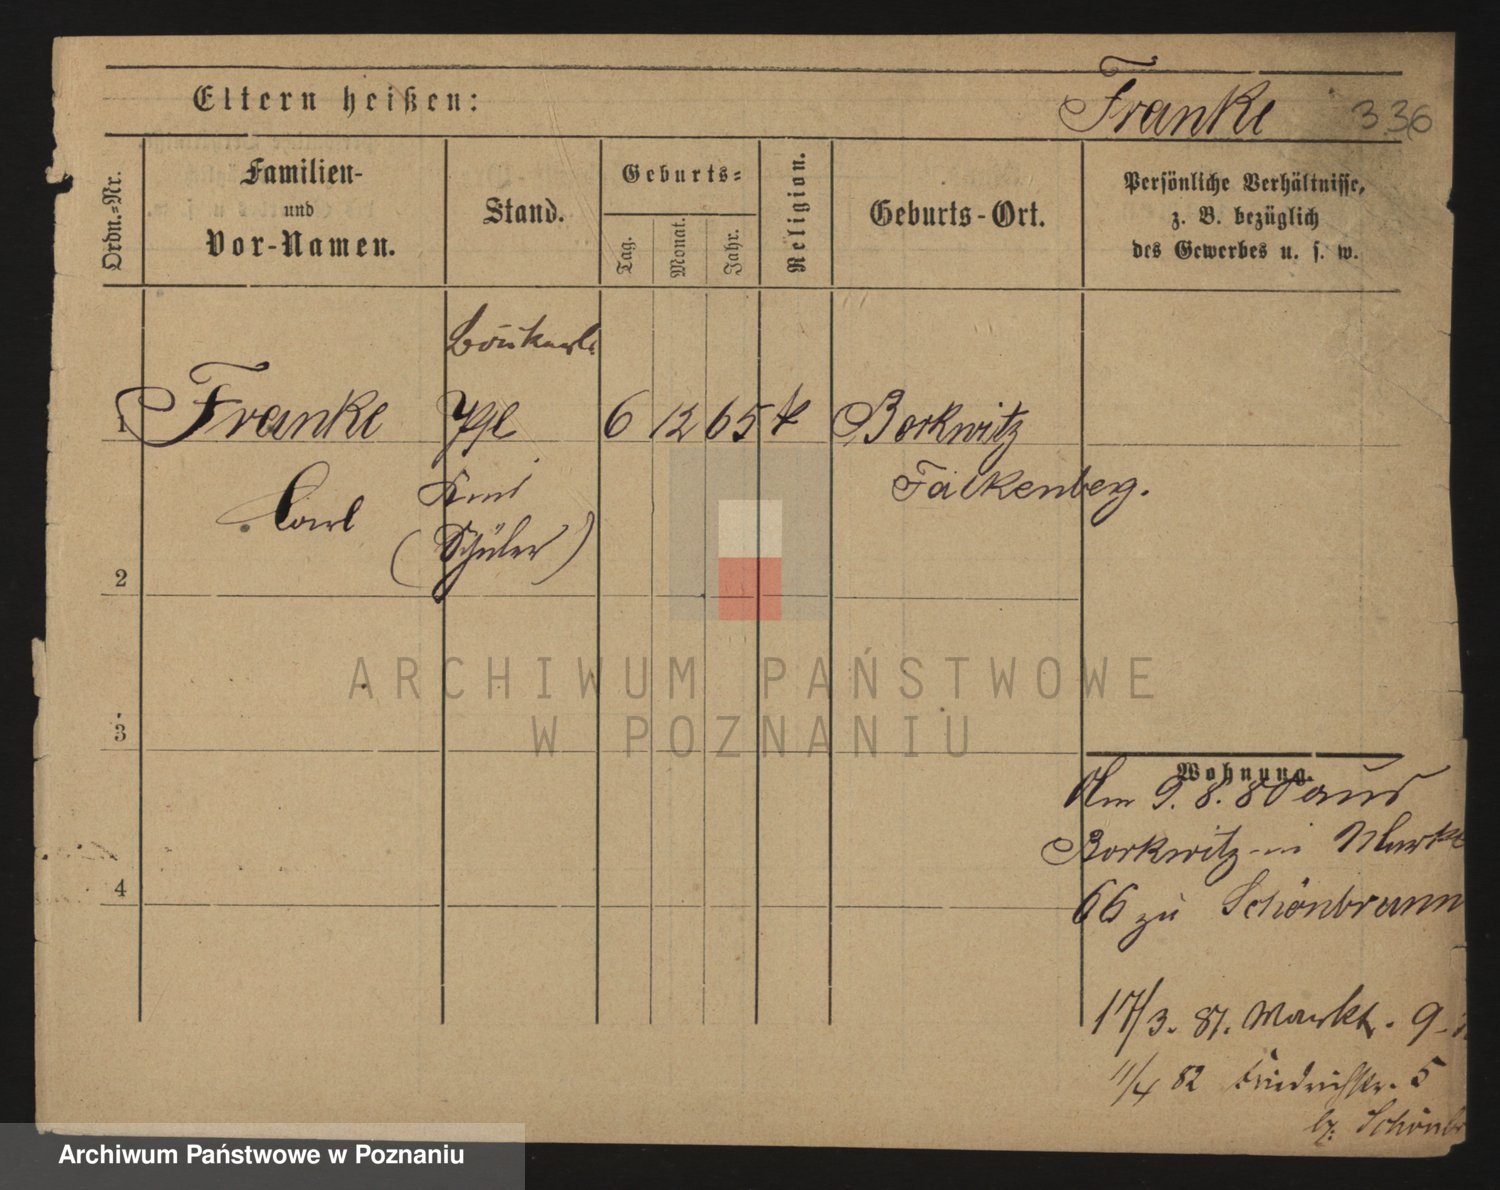 Eltern heißen:
Franke
336
Ordn.-Nr.
Familien-
und
Vor-Namen.
Stand.
Geburts-
Tag.
Monat.
Jahr.
Religion.
Geburts-Ort.
Persönliche Verhältnisse,
z. B. bezüglich
des Gewerbes u. s. w.
1 Franke 6 12 65 k Borkwitz
Carl Falkenberg.
(Schüler)
2
3
4
Wohnung.
Am 9. 8. 80 aus
Borkwitz in Markt
66 zu Schönbrunn
17/3. 81. Markt. 9
11/4 82 Friedrichstr. 5
ARCHIWUM PAŃSTWOWE
W POZNANIU
Archiwum Państwowe w Poznaniu